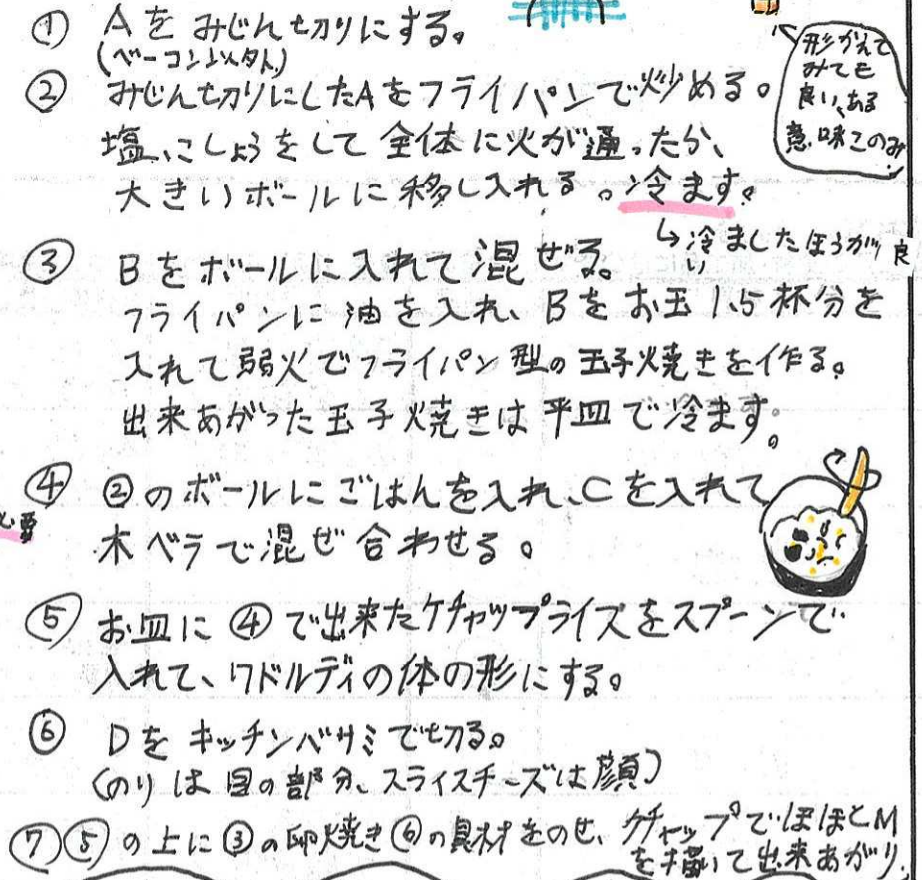 ① Aを みじん切りにする。
(ベーコン以外)
② みじん切りにしたAをフライパンで炒める。
塩、こしょうをして全体に火が通ったら、
大きいボールに移し入れる。冷ます。
↳冷ましたほうが良
い
形かえて
みても
良い、ある
意味このみ
③ Bをボールに入れて混ぜる。
フライパンに油を入れ、Bをお玉1.5杯分を
入れて弱火でフライパン型の玉子焼きを作る。
出来あがった玉子焼きは平皿で冷ます。
④ ②のボールにごはんを入れ、Cを入れて
木ベラで混ぜ合わせる。
⑤ お皿に④で出来たケチャップライスをスプーンで
入れて、ワドルディの体の形にする。
⑥ Dをキッチンバサミで切る。
(のりは目の部分、スライスチーズは顔)
⑦ ⑤の上に③の卵焼き⑥の具材をのせ、ケチャップでほほとM
を描いて出来あがり。